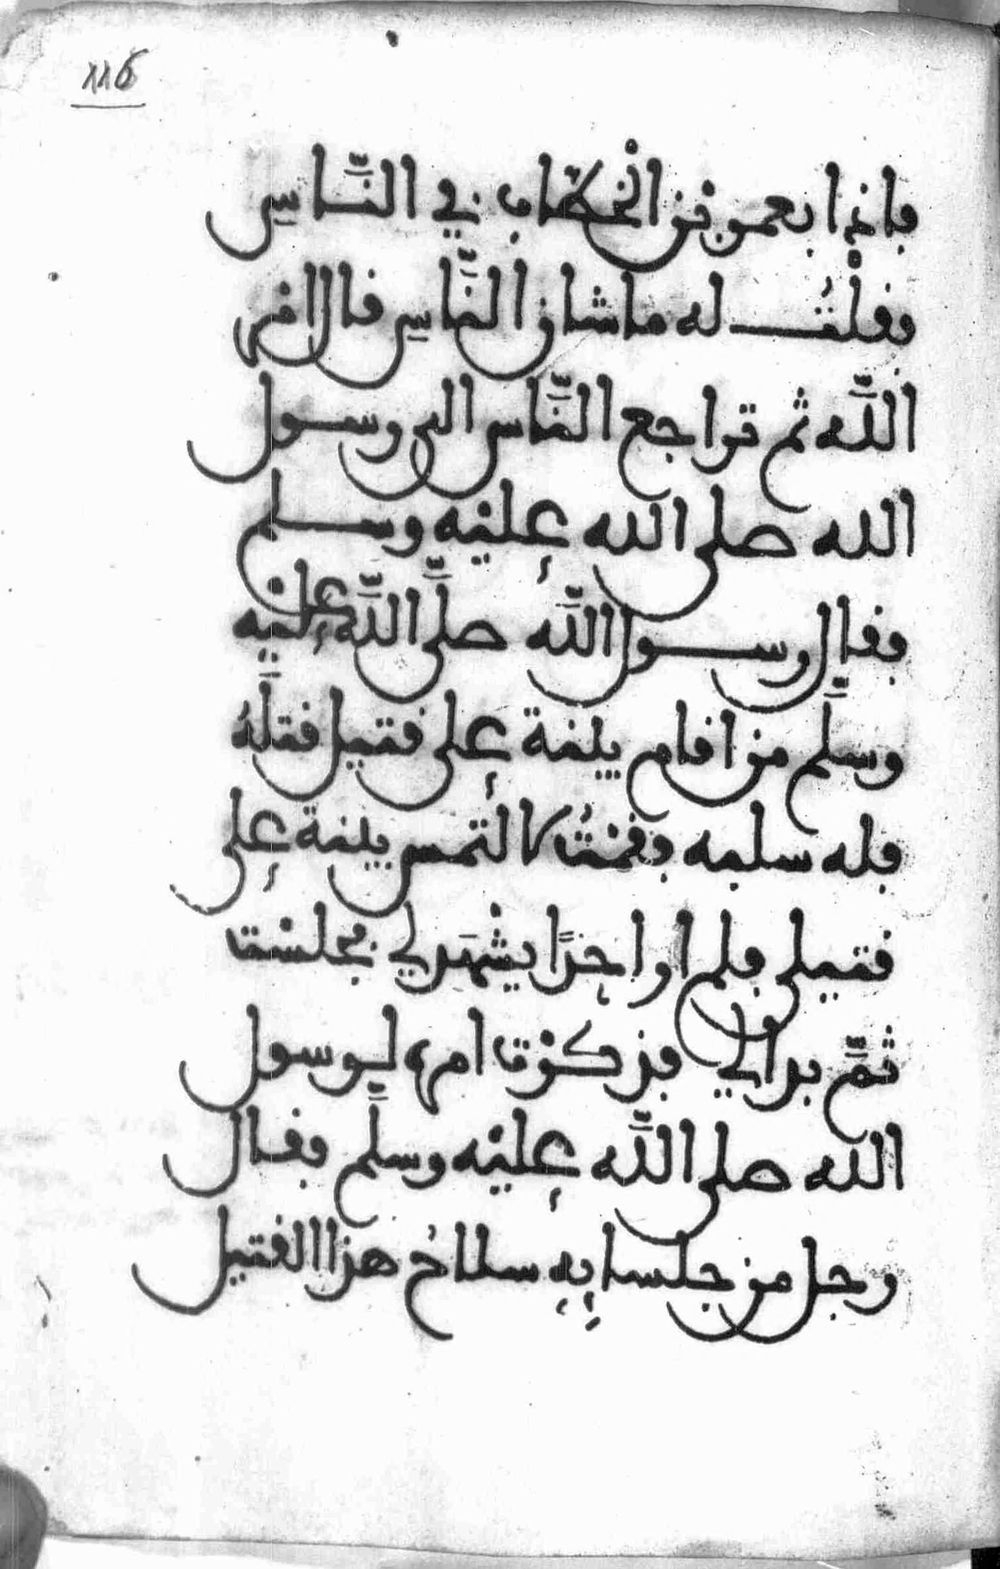 116
فإذا بعمر بن الخطاب في النَّاسِ
فقلْتُ له ما شان النَّاسِ قال امر
اللَّه ثم تراجع النَّاس الى رسول
الله صلى الله عليْه وسلم
فقال رسول اللَّه صلَّى اللَّه عليْه
وسلَّم من اقام بينة على قتيل قتلَهُ
فله سلبه فقمْتُ لالتمس بينة على
قتيلى فلم ار احدًا يشْهَد لي فجلسْت
ثمَّ بدا لي فذكرْت امره لرسول
الله صلى اللَّه عليْه وسلَّم فقال
رجل من جلسايِهِ سلاحُ هذا القتيل